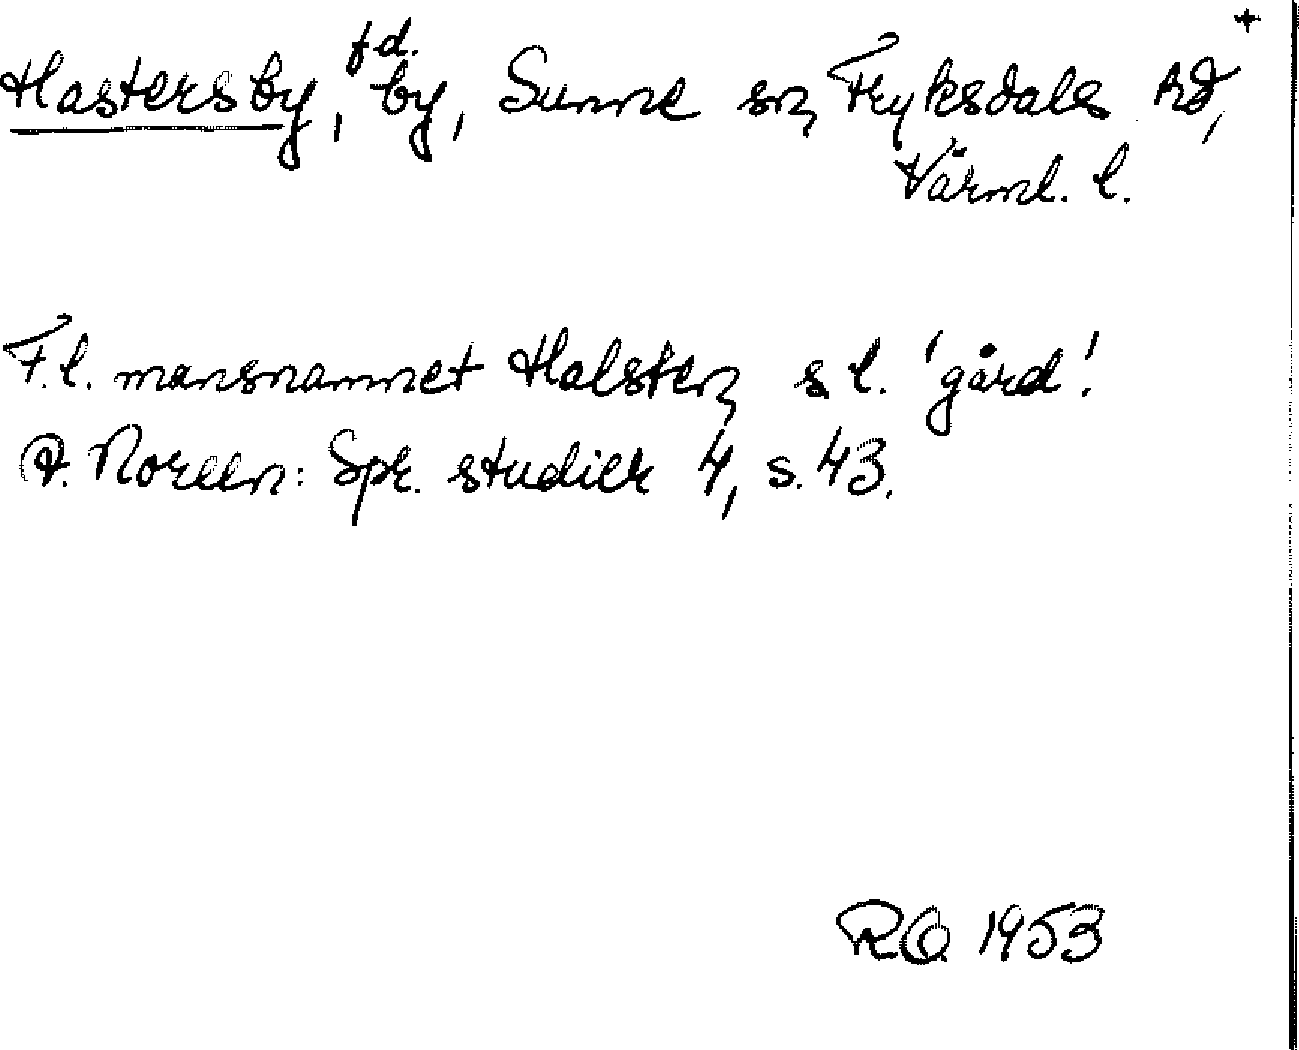 Hastersby, fd. by, Sunne sn, Fryksdals hd, +
Värml. l.
F.l. mansnamnet Halsten, s l. 'gård'.
A. Noreen: Spr. studier 4, s. 43.
RO 1953